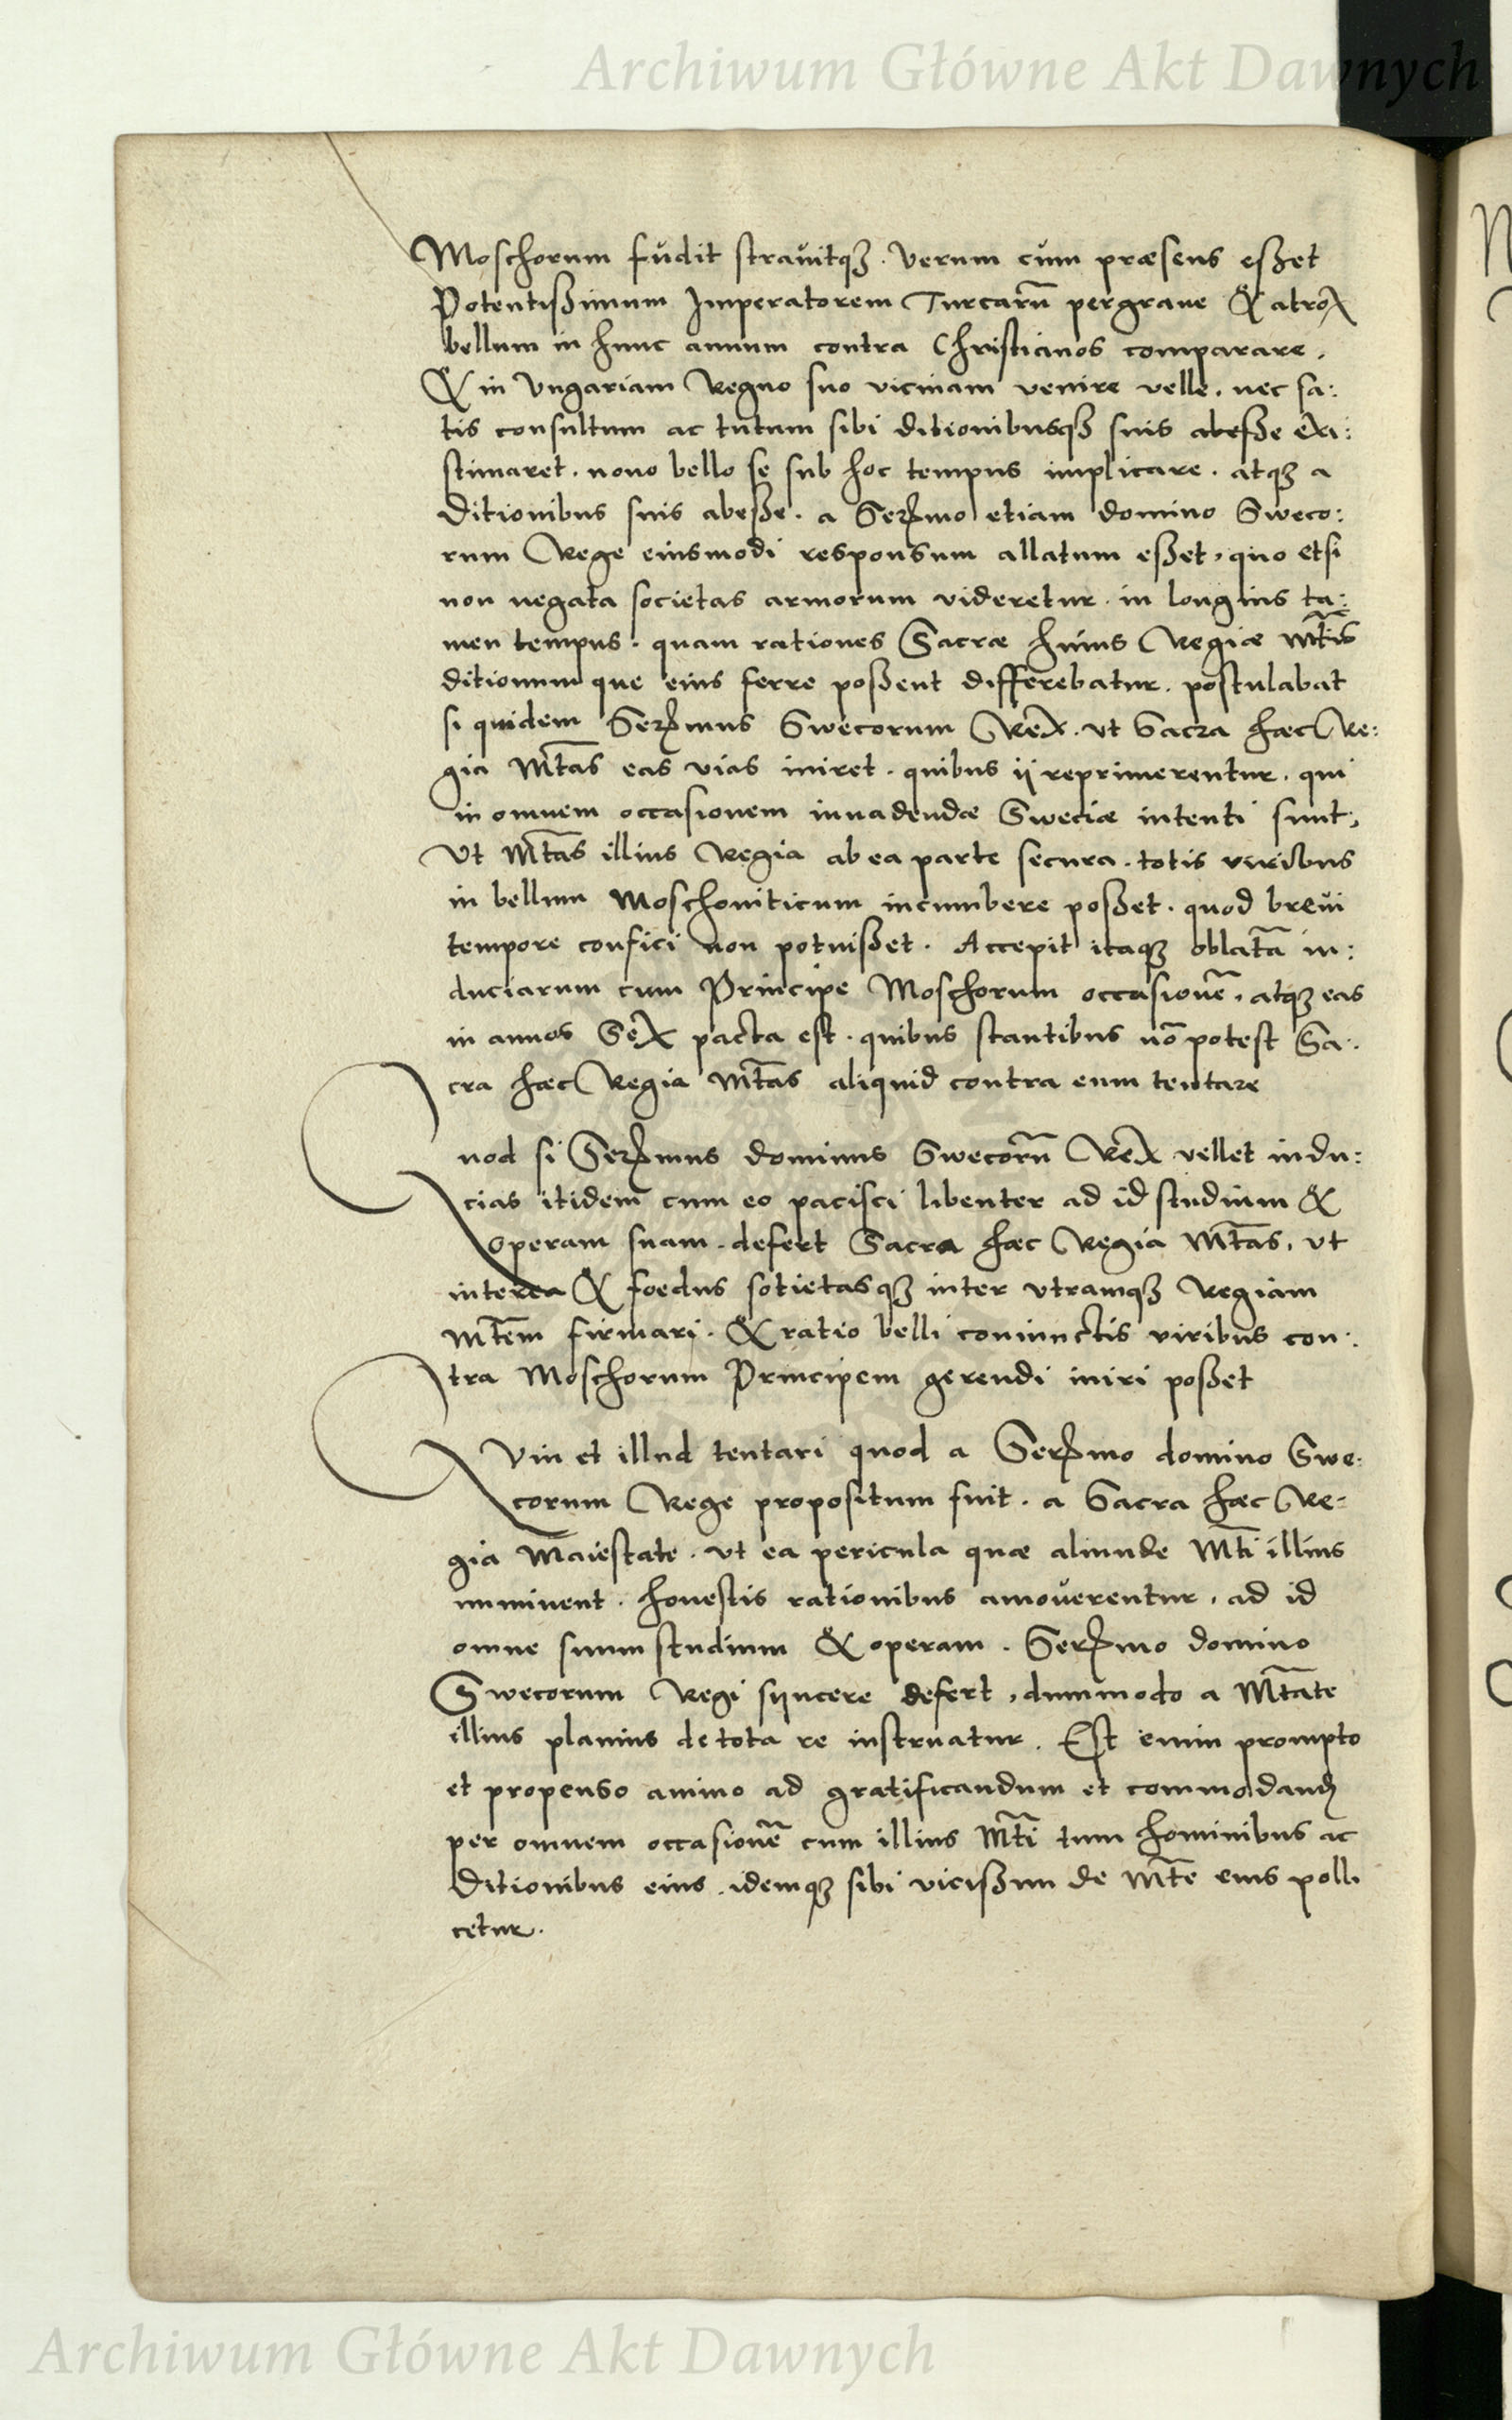 Archiwum Główne Akt Dawnych
Moschorum fudit stravitqȝ. Verum cum præsens eßet
Potentißimum Imperatorem Turcarū pergraue & atrox
bellum in hunc annum contra Christianos comparare,
& in Vngariam Regno suo vicinam venire velle, nec sa:
tis consultum ac tutum sibi ditionibusqȝ suis abeße exi:
stimaret, nouo bello se sub hoc tempus implicare, atqȝ a
ditionibus suis abeße. a Serᵐᵒ etiam domino Sweco:
rum Rege eiusmodi responsum allatum eßet, quo etsi
non negata societas armorum videretur, in longius ta:
men tempus, quam rationes Sacræ huius Regiæ Mt̄is
ditionum que eius ferre poßent differebatur, postulabat
si quidem Serᵐᵘˢ Swecorum Rex, ut Sacra hæc Re:
gia Mt̄as eas vias iniret, quibus ij reprimerentur, qui
in omnem occasionem inuadendæ Sweciæ intenti sunt,
Vt Mt̄as illius Regia ab ea parte secura, totis viribus
in bellum Moschouiticum incumbere poßet, quod brevi
tempore confici non potuißet. Accepit itaqȝ oblatā in:
duciarum cum Principe Moschorum occasionē, atqȝ eas
in annos Sex pacta est, quibus stantibus nō potest Sa:
cra hæc Regia Mt̄as aliquid contra eum tentare
Quod si Serᵐᵘˢ dominus Swecorū Rex vellet indu:
cias itidem cum eo pacisci libenter ad id studium &
operam suam defert Sacra hæc Regia Mt̄as, ut
interea & foedus sotietasqȝ inter utramqȝ Regiam
Mt̄em firmari, & ratio belli coniunctis viribus con:
tra Moschorum Principem gerendi iniri poßet
QVin et illud tentari quod a Serᵐᵒ domino Swe:
corum Rege propositum fuit, a Sacra hæc Re:
gia Maiestate, ut ea pericula quæ aliunde Mt̄i illius
imminent, honestis rationibus amoverentur, ad id
omne suum studium & operam, Serᵐᵒ domino
Swecorum Regi syncere defert, dummodo a Mt̄ate
illius planius de tota re instruatur. Est enim prompto
et propenso animo ad gratificandum et commodand
per omnem occasionē cum illius Mt̄i tum hominibus ac
Ditionibus eius, idemqȝ sibi vicißim de Mt̄e eius polli
cetur.
Archiwum Główne Akt Dawnych